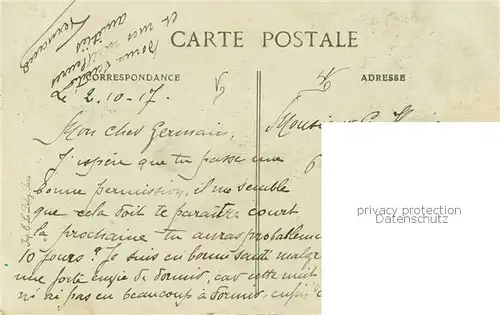 Bonne santé
et mes meilleures
amitiés
Germaine
CARTE POSTALE
CORRESPONDANCE
ADRESSE
Le 2.10-17.
Mon cher Germain,
Monsieur G.
J'espère que tu passe une
6
bonne permission, il me semble
que cela doit te paraître court
la prochaine tu auras probablem
10 jours? Je suis en bonne santé malgré
une forte envie de dormir, car cette nuit
n'ai pas eu beaucoup à dormir, enfin
privacy protection
watermark